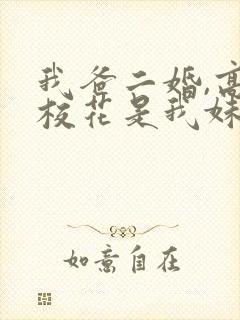 我爸二婚,高
校花是我妹
如意自在